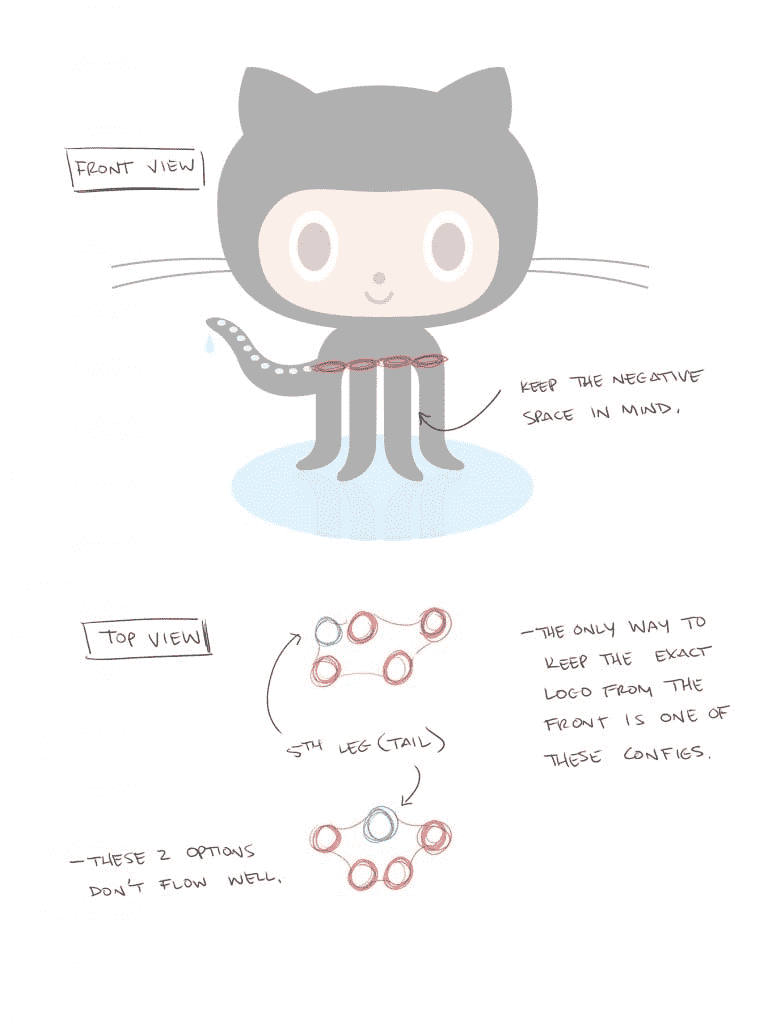 FRONT VIEW
KEEP THE NEGATIVE
SPACE IN MIND.
TOP VIEW
-THE ONLY WAY TO
KEEP THE EXACT
LOGO FROM THE
FRONT IS ONE OF
THESE CONFIGS.
5TH LEG (TAIL)
-THESE 2 OPTIONS
DON'T FLOW WELL.